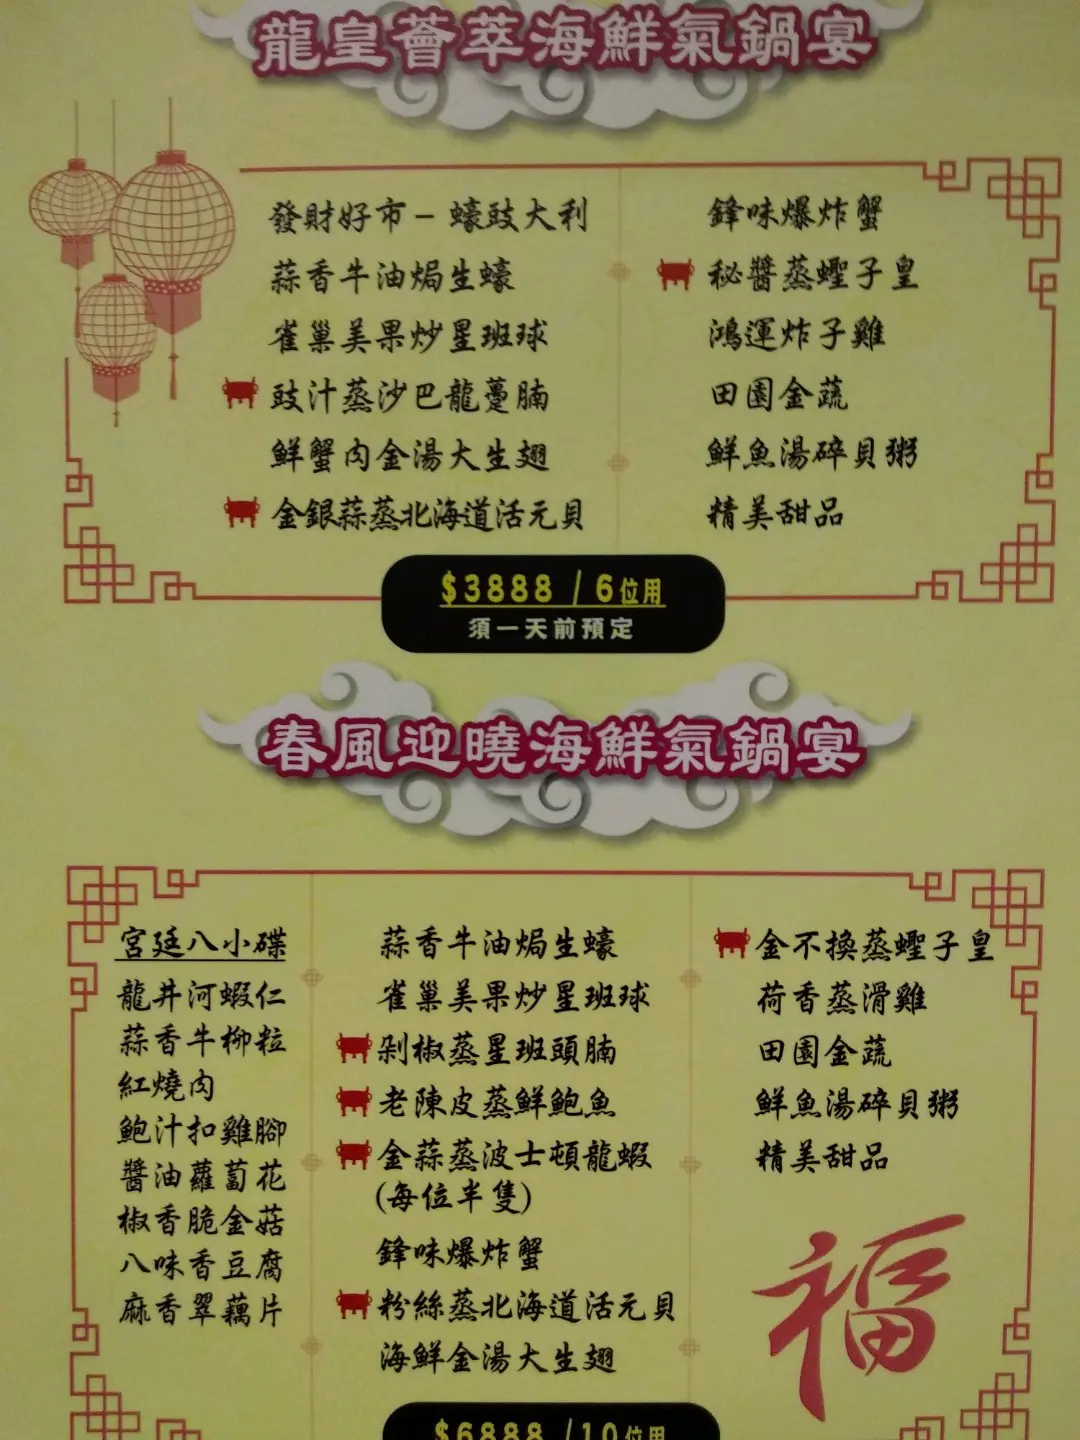 龍皇薈萃海鮮氣鍋宴
發財好市－蠔豉大利
蒜香牛油焗生蠔
雀巢美果炒星班球
豉汁蒸沙巴龍躉腩
鮮蟹肉金湯大生翅
金銀蒜蒸北海道活元貝
鋒味爆炸蟹
秘醬蒸蟶子皇
鴻運炸子雞
田園金蔬
鮮魚湯碎貝粥
精美甜品
$3888 / 6位用
須一天前預定
春風迎曉海鮮氣鍋宴
宮廷八小碟
龍井河蝦仁
蒜香牛柳粒
紅燒肉
鮑汁扣雞腳
醬油蘿蔔花
椒香脆金菇
八味香豆腐
麻香翠藕片
蒜香牛油焗生蠔
雀巢美果炒星班球
剁椒蒸星班頭腩
老陳皮蒸鮮鮑魚
金蒜蒸波士頓龍蝦
(每位半隻)
鋒味爆炸蟹
粉絲蒸北海道活元貝
海鮮金湯大生翅
金不換蒸蟶子皇
荷香蒸滑雞
田園金蔬
鮮魚湯碎貝粥
精美甜品
福
$6888 /10位用